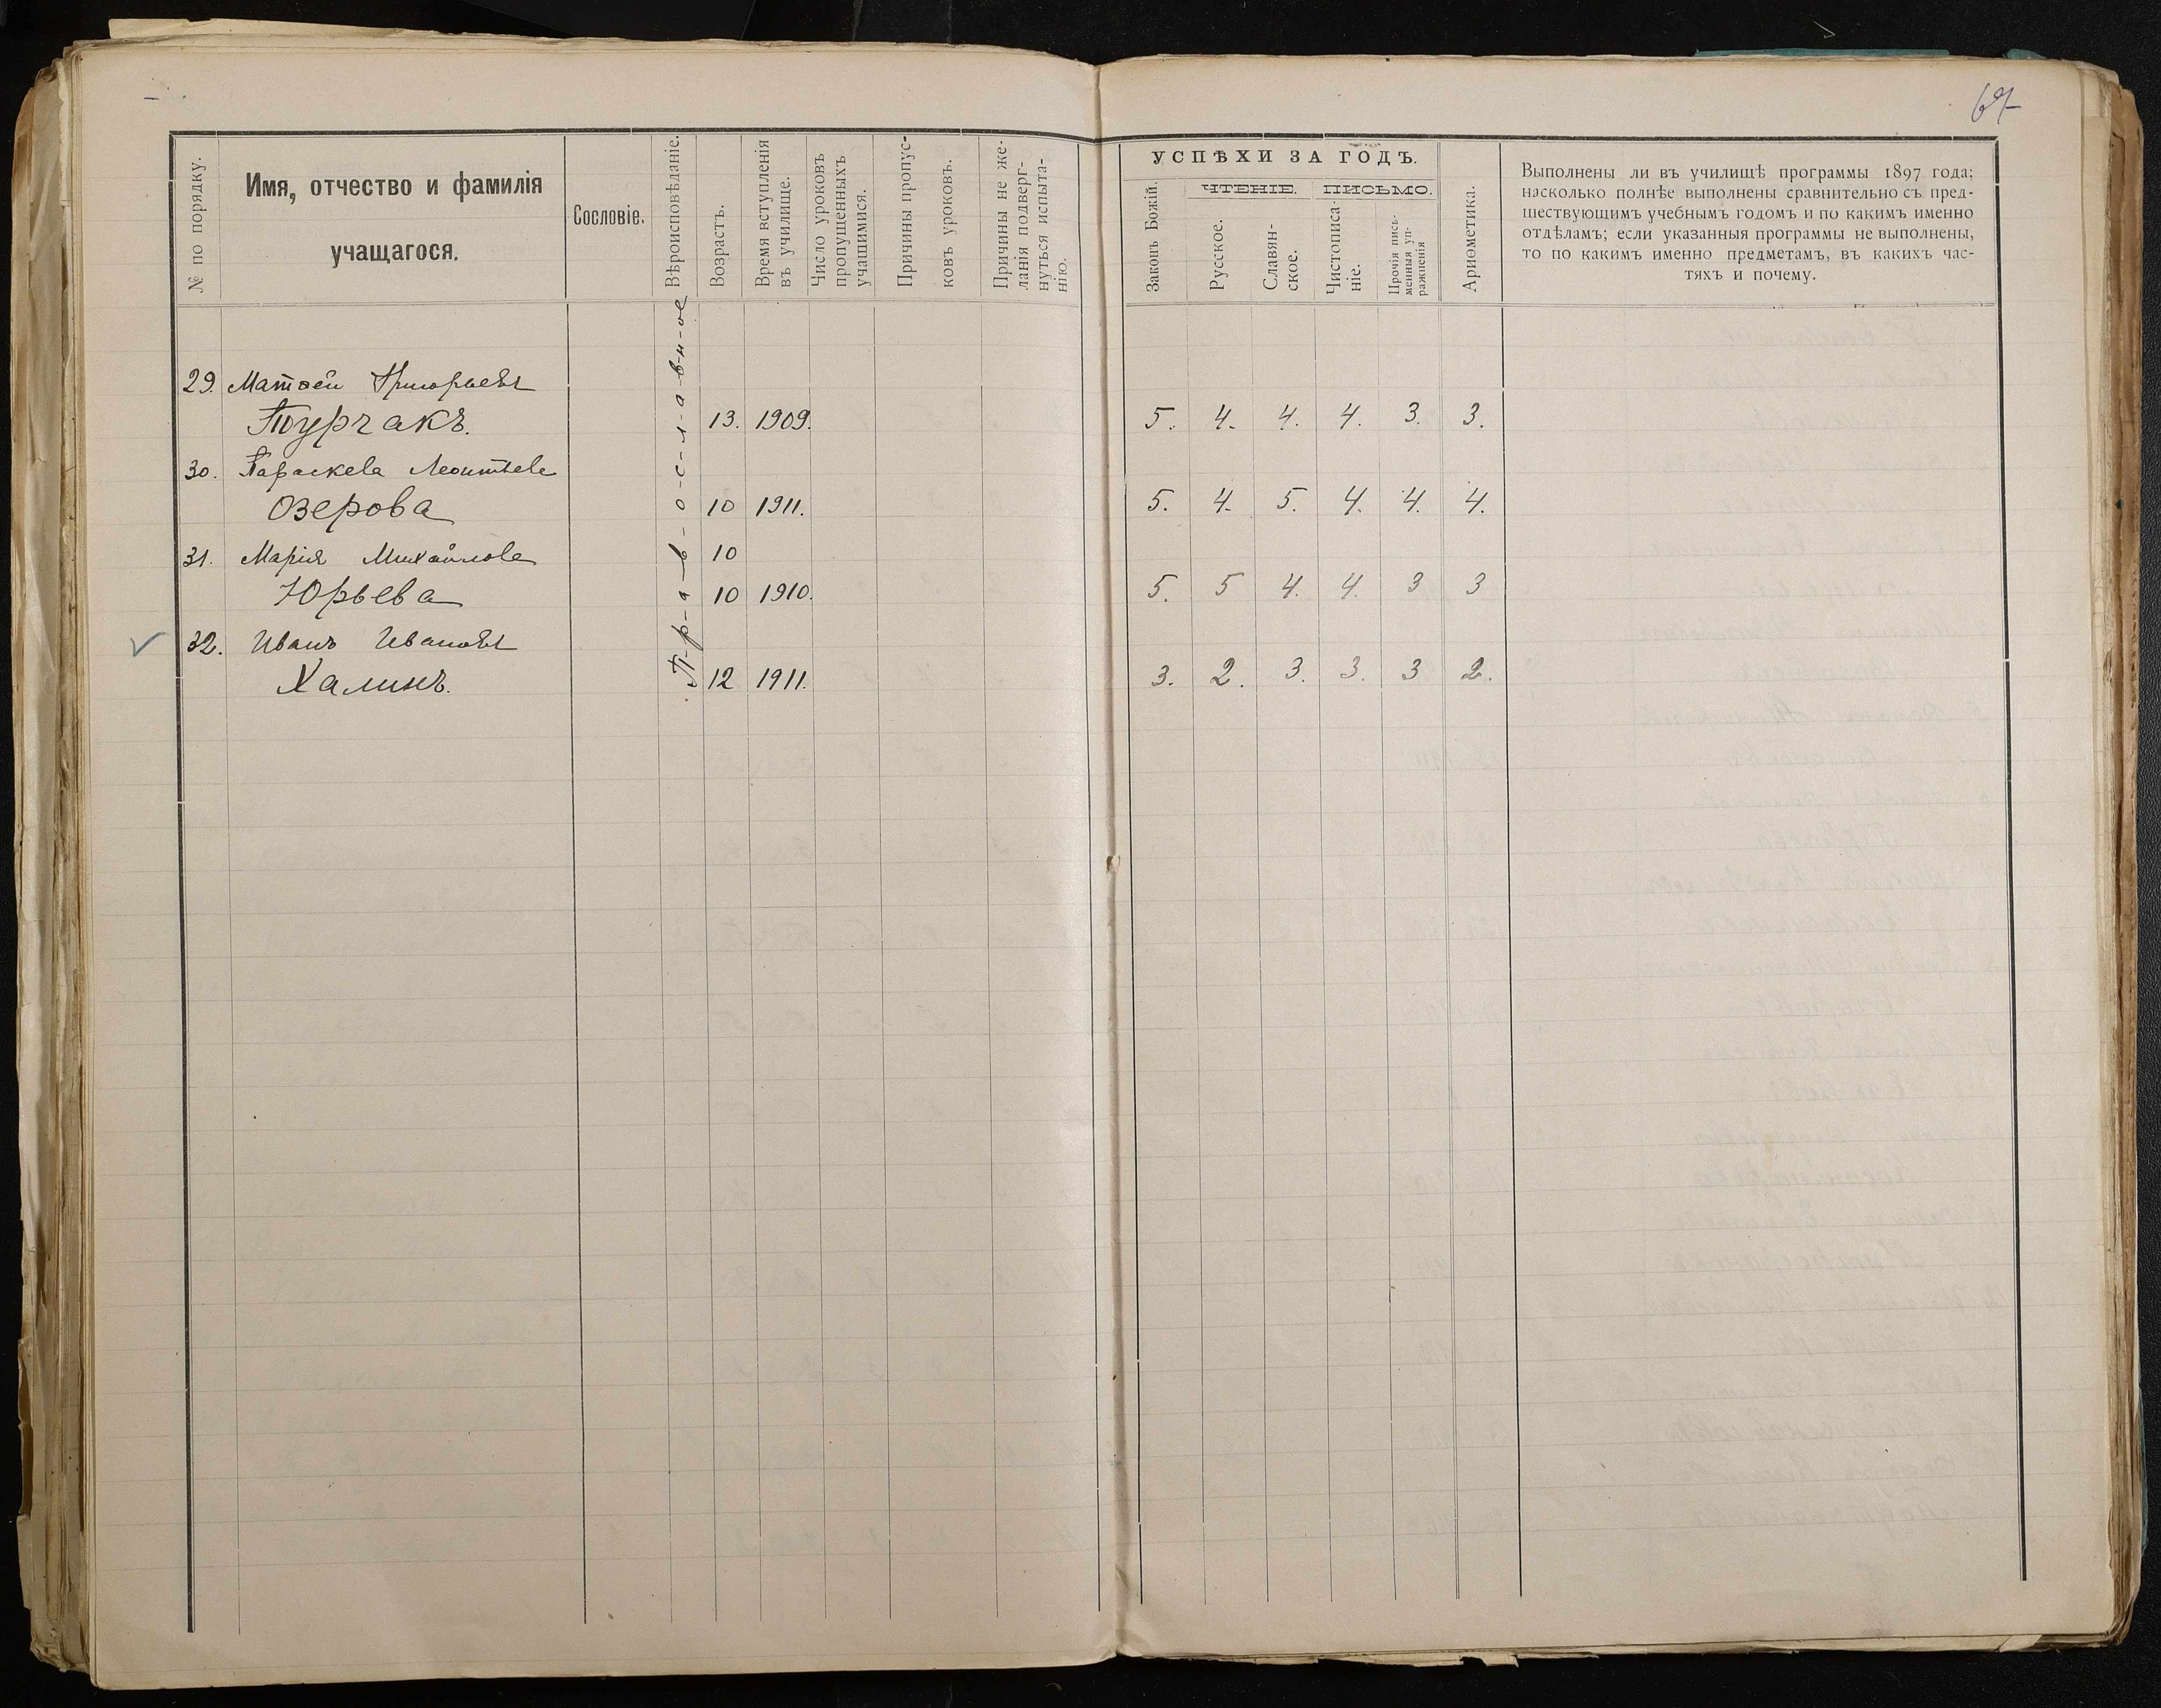 67
№ по порядку.
Имя, отчество и фамилія
учащагося.
Сословіе.
Вѣроисповѣданіе.
Возрастъ.
Время вступленія
въ училище.
Число уроковъ
пропущенныхъ
учащимися.
Причины пропус-
ковъ уроковъ.
Причины не же-
ланія подверг-
нуться испыта-
нію.
УСПѢХИ ЗА ГОДЪ.
Законъ Божій.
ЧТЕНІЕ.
Русское.
Славян-
ское.
ПИСЬМО.
Чистописа-
ніе.
Прочія пись-
менныя уп-
ражненія
Ариѳметика.
Выполнены ли въ училищѣ программы 1897 года;
насколько полнѣе выполнены сравнительно съ пред-
шествующимъ учебнымъ годомъ и по какимъ именно
отдѣламъ; если указанныя программы не выполнены,
то по какимъ именно предметамъ, въ какихъ час-
тяхъ и почему.
П-р-а-в-о-с-л-а-вн-ое
29. Матѳей Григорьевъ
Турчакъ. 13. 1909. 5. 4. 4. 4. 3. 3.
30. Параскева Леонтьева
Озерова 10 1911. 5. 4. 5. 4. 4. 4.
31. Марія Михайлова 10
Юрьева 10 1910. 5. 5 4. 4. 3 3
32. Иванъ Ивановъ
Халинъ. 12 1911. 3. 2. 3. 3. 3 2.